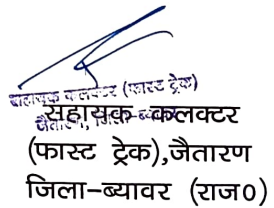 सहायक कलक्टर (फास्ट ट्रेक)
जैतारण, जिला-ब्यावर
सहायक कलक्टर
(फास्ट ट्रेक),जैतारण
जिला-ब्यावर (राज0)